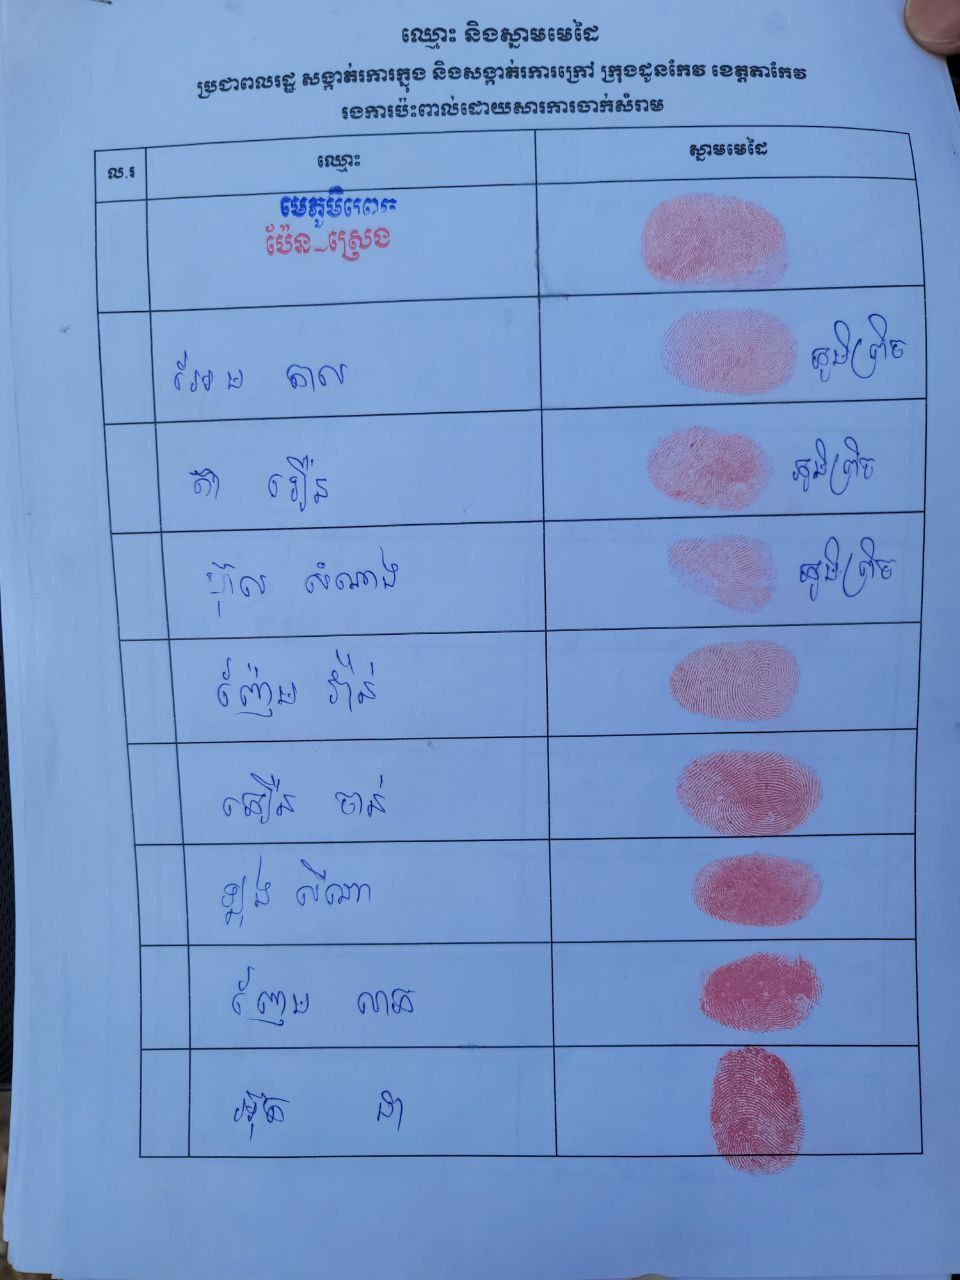 ឈ្មោះ និងស្នាមមេដៃ
ប្រជាពលរដ្ឋ សង្កាត់រការក្នុង និងសង្កាត់រការក្រៅ ក្រុងដូនកែវ ខេត្តតាកែវ
រងការប៉ះពាល់ដោយសារការចាក់សំរាម
ល.រ ឈ្មោះ ស្នាមមេដៃ
មេភូមិ
ប៉ែន ស្រេង
តាល ភូមិព្រិច
ភូមិព្រិច
សំណាង ភូមិព្រិច
ញ៉ែម វ៉ាន់
ធឿន ចាន់
ឡុង លីណា
ញែម